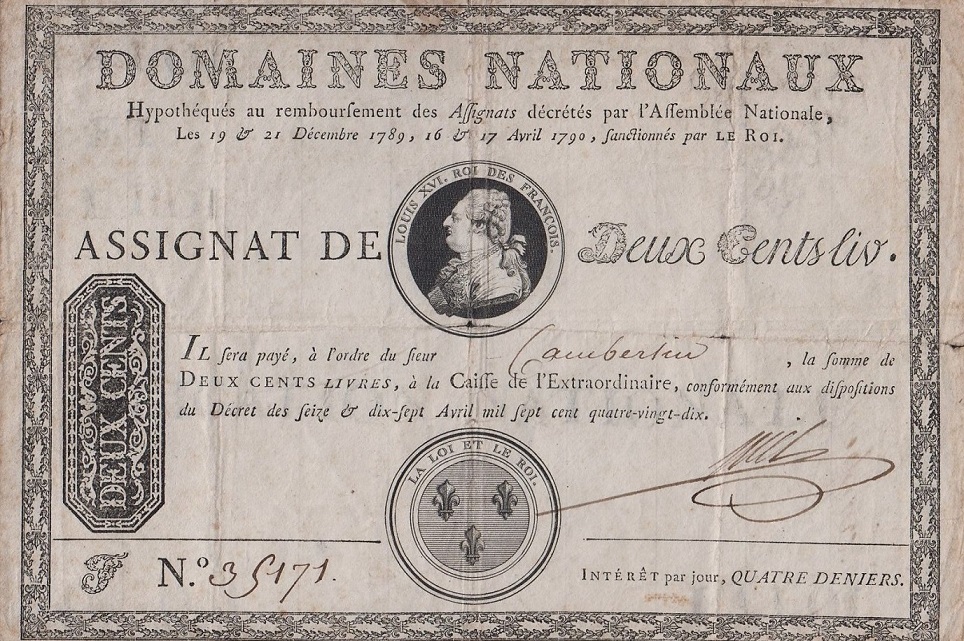 DOMAINES NATIONAUX
Hypothéqués au rembourſement des Aſſignats décrétés par l'Aſſemblée Nationale,
Les 19 & 21 Décembre 1789, 16 & 17 Avril 1790, ſanctionnés par LE ROI.
LOUIS XVI. ROI DES FRANÇOIS.
ASSIGNAT DE Deux Cents liv.
DEUX CENTS
IL ſera payé, à l'ordre du ſieur , la ſomme de
DEUX CENTS LIVRES, à la Caiſſe de l'Extraordinaire, conformément aux diſpoſitions
du Décret des ſeize & dix-ſept Avril mil ſept cent quatre-vingt-dix.
LA LOI ET LE ROI.
N.º 35171.
INTÉRÊT par jour, QUATRE DENIERS.